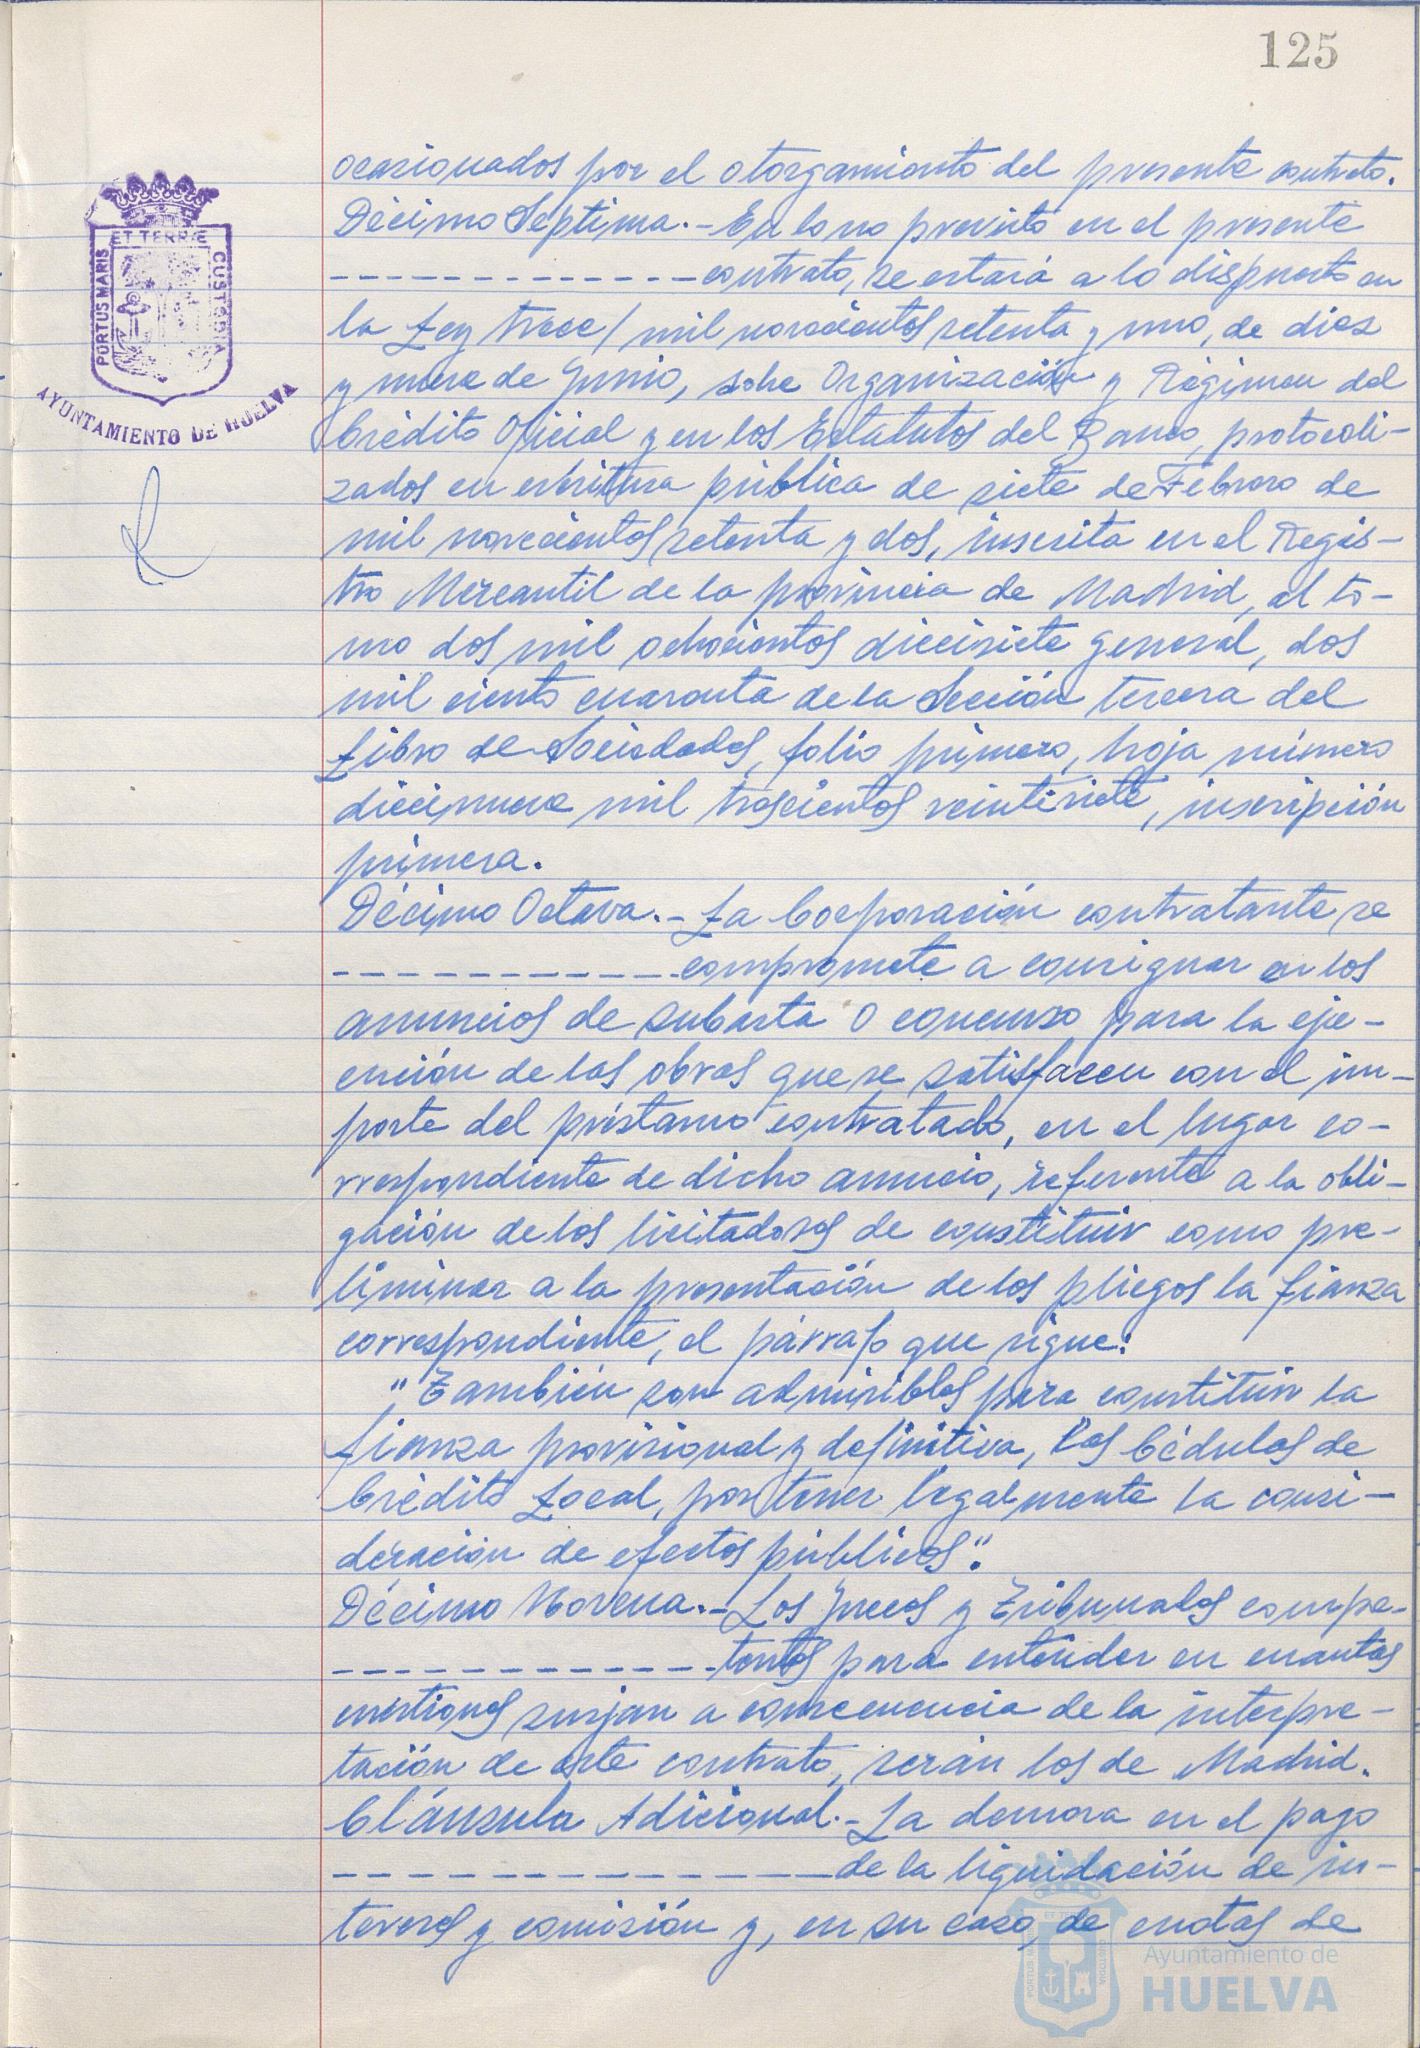 125
PORTUS MARIS ET TERRÆ CUSTODIA
AYUNTAMIENTO DE HUELVA
ocasionados por el otorgamiento del presente contrato.
Décimo Septima.- En lo no previsto en el presente
------------- contrato, se estará a lo dispuesto en
la Ley trece/mil novecientos setenta y uno, de diez
y nueve de Junio, sobre Organización y Régimen del
Crédito Oficial y en los Estatutos del Banco, protocoli-
zados en escritura pública de siete de Febrero de
mil novecientos setenta y dos, inscrita en el Regis-
tro Mercantil de la provincia de Madrid, al to-
mo dos mil ochocientos diecisiete general, dos
mil ciento cuarenta de la Sección tercera del
Libro de Sociedades, folio primero, hoja número
diecinueve mil trescientos veintisiete, inscripción
primera.
Décimo Octava.- La Corporación contratante se
------------ compromete a consignar en los
anuncios de subasta o concurso para la eje-
cución de las obras que se satisfacen con el im-
porte del préstamo contratado, en el lugar co-
rrespondiente de dicho anuncio, referente a la obli-
gación de los licitadores de constituir como pre-
liminar a la presentación de los pliegos la fianza
correspondiente, el párrafo que sigue:
"También son admisibles para constituir la
fianza provisional y definitiva, las Cédulas de
Crédito Local, por tener legalmente la consi-
deración de efectos públicos".
Décimo Novena.- Los Jueces y Tribunales compe-
------------- tentes para entender en cuantas
cuestiones surjan a consecuencia de la interpre-
tación de este contrato, serán los de Madrid.
Cláusula Adicional.- La demora en el pago
---------------- de la liquidación de in-
tereses y comisión y, en su caso, de cuotas de
Ayuntamiento de
HUELVA